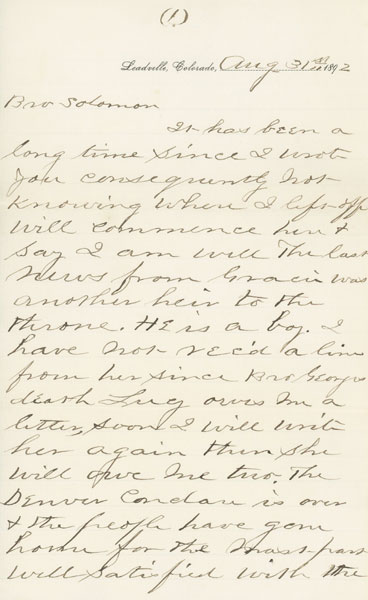 (1)
Leadville, Colorado, Aug 31st 1892
Bro Solomon
It has been a
long time since I wrote
you consequently not
knowing where I left off
will commence here &
say I am well The last
news from Gracie was
another heir to the
throne. HE is a boy. I
have not rec'd a line
from her since Bro Georges
death Lucy owes me a
letter, soon I will write
her again then she
will owe me two. The
Denver Conclave is over
& the people have gone
home for the most part
well satisfied with the